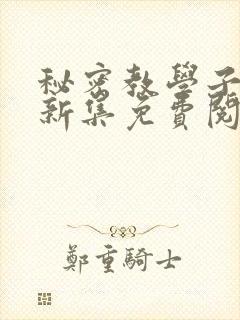 秘密教學子
新集免費閱
鄭重騎士